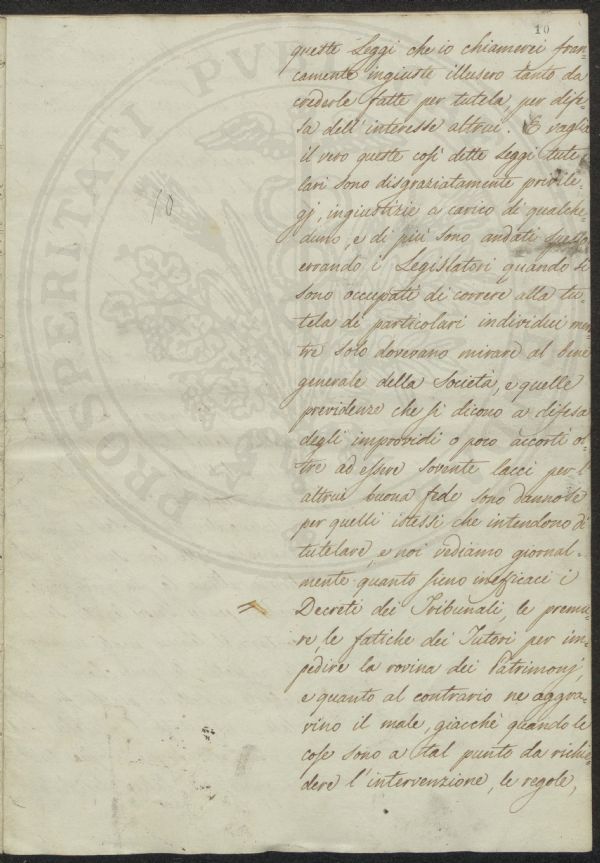 10
queste Leggi che io chiamerei fran=
camente ingiuste illusero tanto da
crederle fatte per tutela, per dife=
sa dell'interesse altrui. E vaglia
il vero queste così dette Leggi tute
lari sono disgraziatamente privile=
gj, ingiustizie a carico di qualche=
duno, e di più sono andati spesso
errando i Legislatori quando si
sono occupati di correre alla tu
tela di particolari individui men
tre solo dovevano mirare al bene
generale della Società, e quelle
previdenze che si dicono a difesa
degli improvidi o poco accorti ol
tre ad essere sovente lacci per l'
altrui buona fede sono dannose
per quelli istessi che intendono di
tutelare, e noi vediamo giornal=
mente quanto sieno inefficaci i
Decreti dei Tribunali, le premu=
re, le fatiche dei Tutori per im=
pedire la rovina dei Patrimonj,
e quanto al contrario ne aggra=
vino il male, giacchè quando le
cose sono a tal punto da richie
dere l'intervenzione, le regole,
10
PROSPERITATI PUBLI